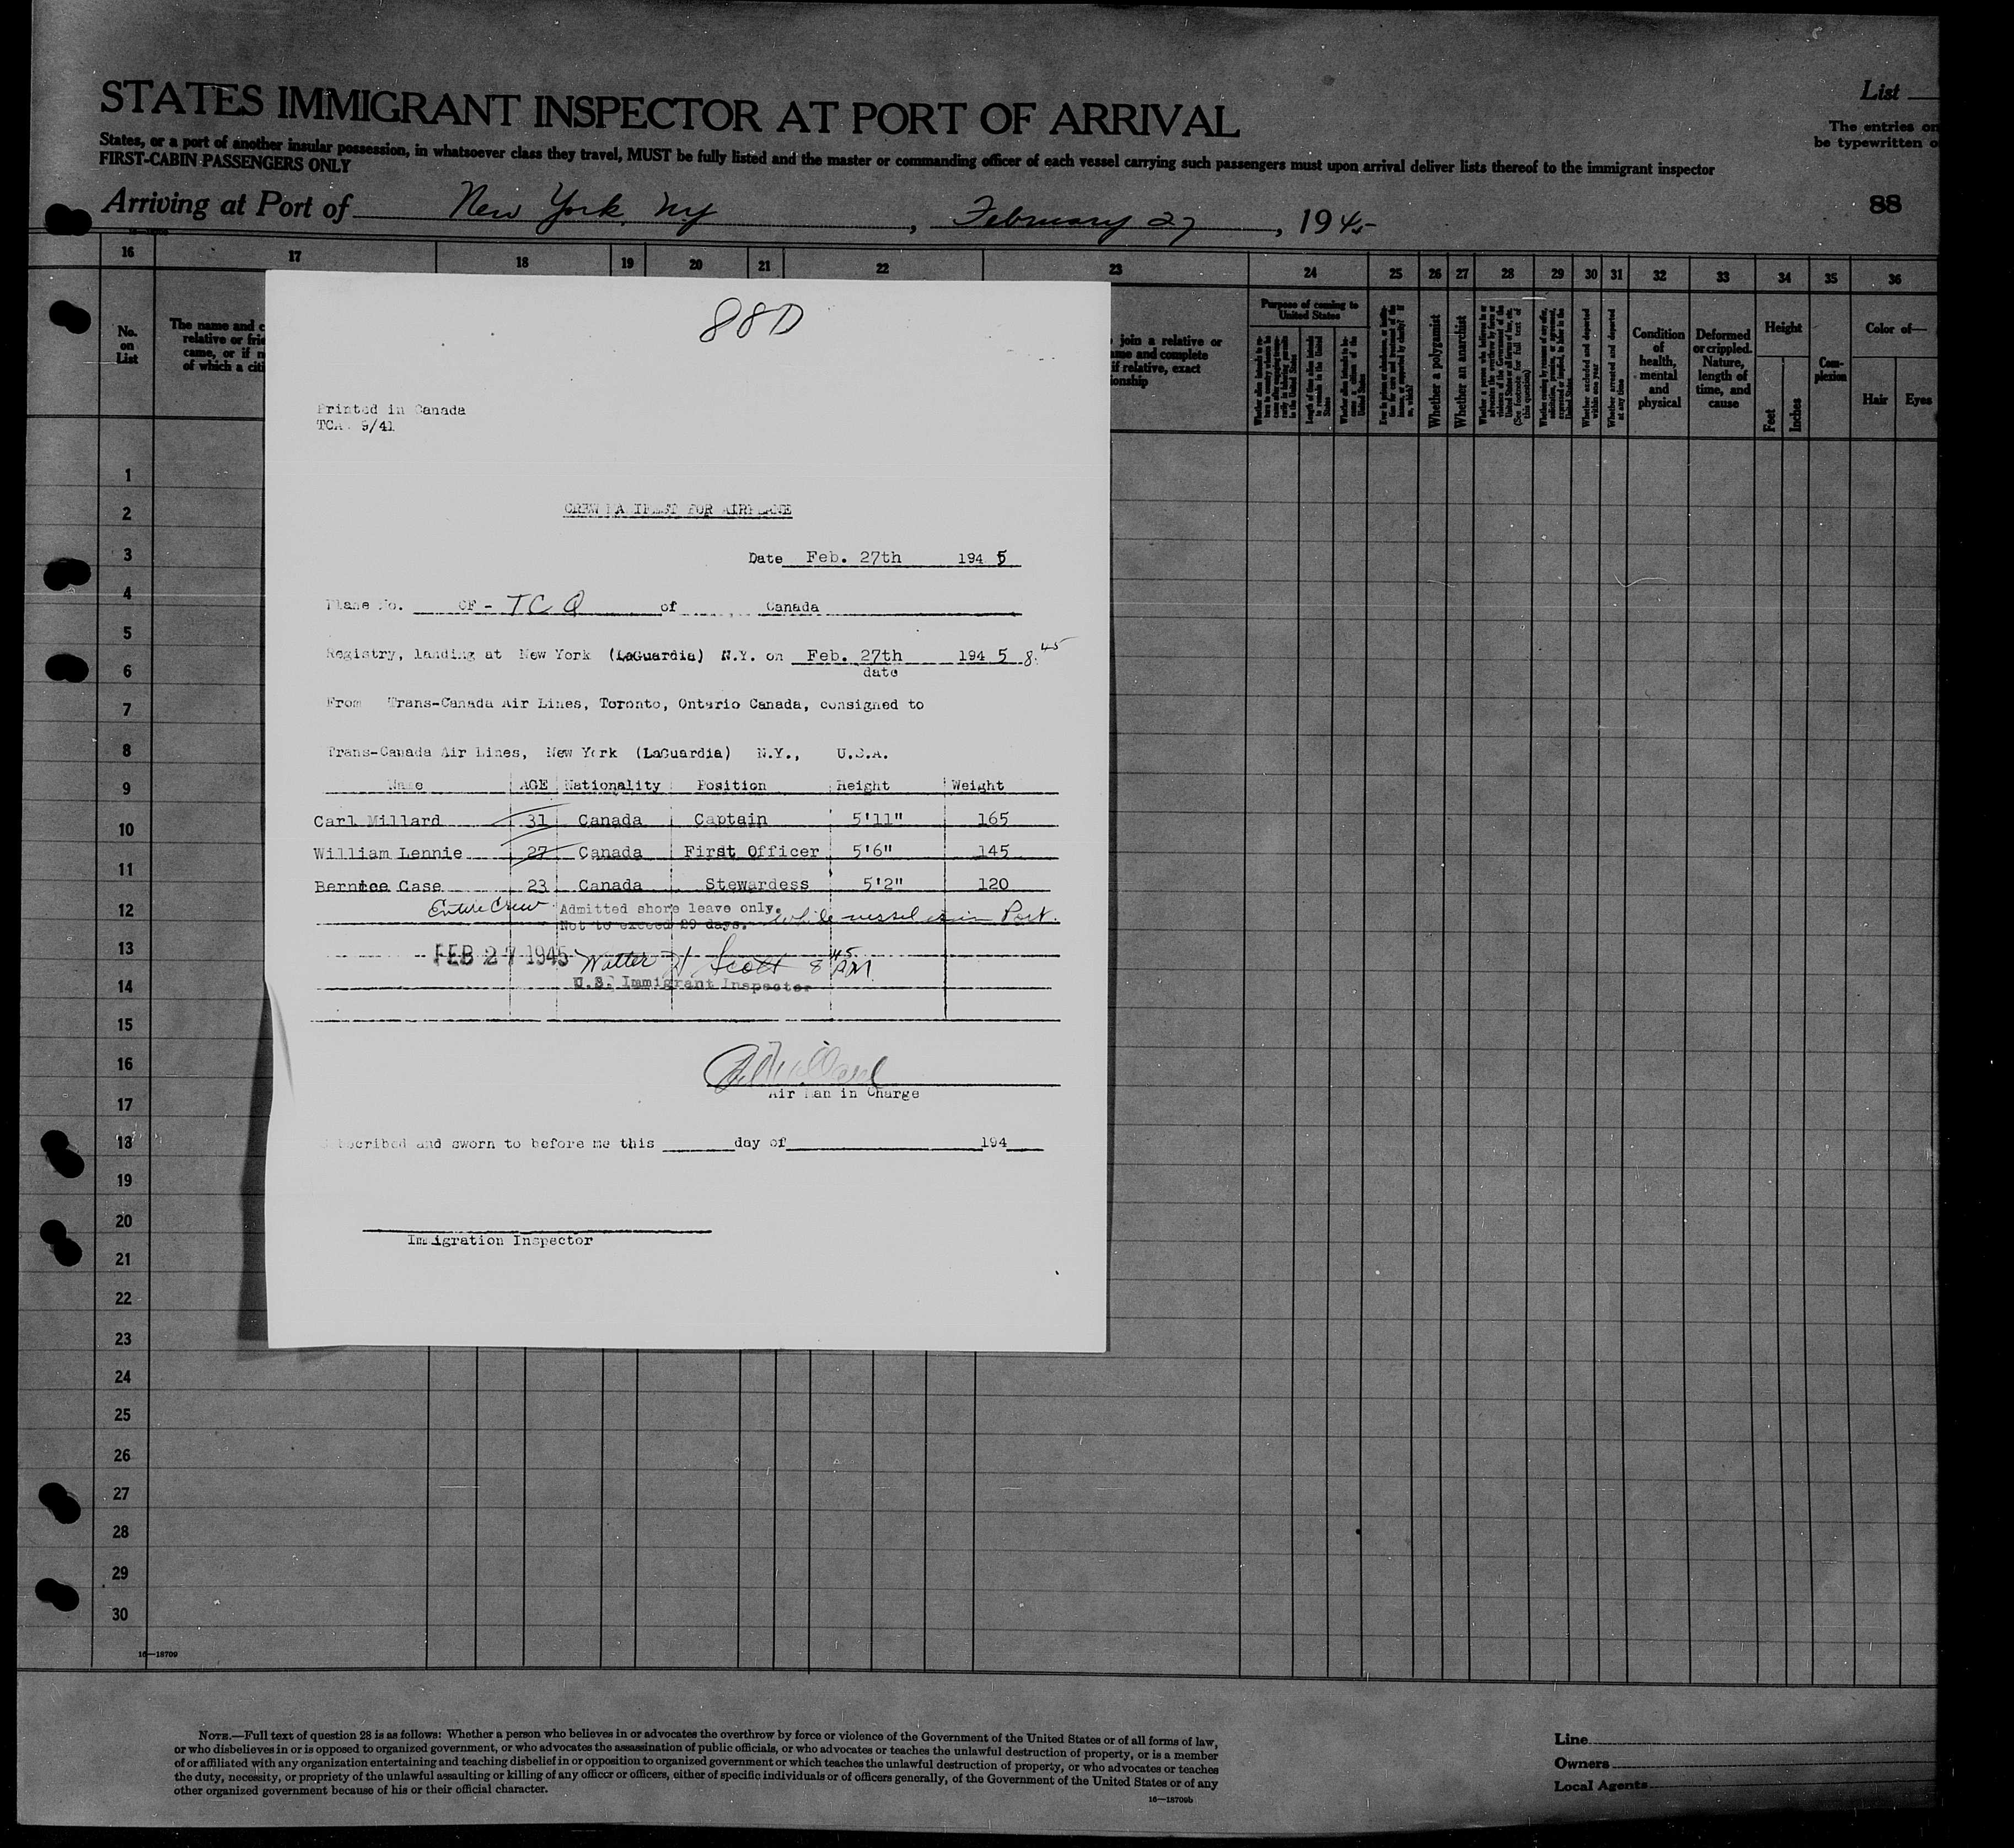 STATES IMMIGRANT INSPECTOR AT PORT OF ARRIVAL
List
The entries on
be typewritten o
States, or a port of another insular possession, in whatsoever class they travel, MUST be fully listed and the master or commanding officer of each vessel carrying such passengers must upon arrival deliver lists thereof to the immigrant inspector
FIRST-CABIN PASSENGERS ONLY
Arriving at Port of New York, NY, February 27, 1945
88
16 17 18 19 20 21 22 23 24 25 26 27 28 29 30 31 32 33 34 35 36
No. on List
The name and c
relative or frie
came, or if n
of which a citi
join a relative or
ame and complete
if relative, exact
ionship
Purpose of coming to United States
Whether a polygamist
Whether an anarchist
Whether excluded and deported within one year
Whether arrested and deported at any time
Condition of health, mental and physical
Deformed or crippled. Nature, length of time, and cause
Height
Feet
Inches
Complexion
Color of—
Hair
Eyes
88D
Printed in Canada
TCA 9/41
CREW MANIFEST FOR AIRPLANE
Date Feb. 27th 1945
Plane No. CF - TCQ of Canada
Registry, landing at New York (LaGuardia) N.Y. on Feb. 27th 1945 8:45
date
From Trans-Canada Air Lines, Toronto, Ontario Canada, consigned to
Trans-Canada Air Lines, New York (LaGuardia) N.Y., U.S.A.
Name AGE Nationality Position Height Weight
Carl Millard 31 Canada Captain 5'11" 165
William Lennie 27 Canada First Officer 5'6" 145
Bernice Case 23 Canada Stewardess 5'2" 120
Entire Crew Admitted shore leave only. while vessel is in Port.
Not to exceed 29 days.
FEB 27 1945 Walter H Scott 8 45 PM
U.S. Immigrant Inspector
Air Man in Charge
Subscribed and sworn to before me this day of 194
Immigration Inspector
1
2
3
4
5
6
7
8
9
10
11
12
13
14
15
16
17
18
19
20
21
22
23
24
25
26
27
28
29
30
16—18709
NOTE.—Full text of question 28 is as follows: Whether a person who believes in or advocates the overthrow by force or violence of the Government of the United States or of all forms of law,
or who disbelieves in or is opposed to organized government, or who advocates the assassination of public officials, or who advocates or teaches the unlawful destruction of property, or is a member
of or affiliated with any organization entertaining and teaching disbelief in or opposition to organized government or which teaches the unlawful destruction of property, or who advocates or teaches
the duty, necessity, or propriety of the unlawful assaulting or killing of any officer or officers, either of specific individuals or of officers generally, of the Government of the United States or of any
other organized government because of his or their official character.
16—18709b
Line
Owners
Local Agents